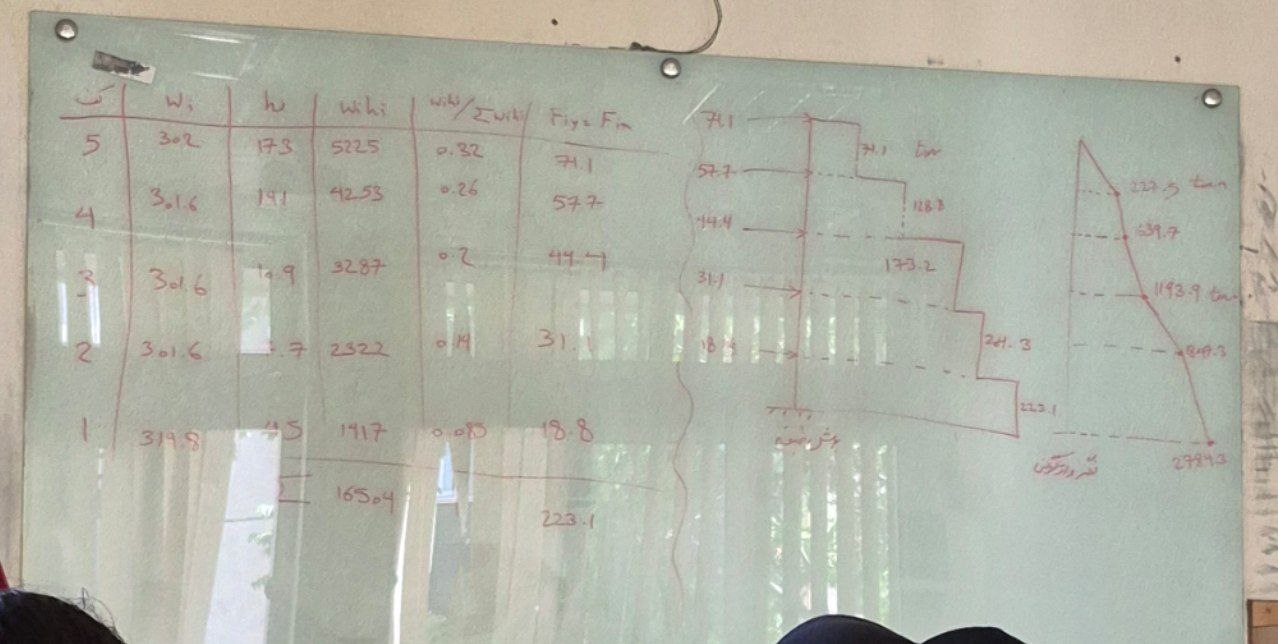 Wi hi wihi wihi/Σwihi Fiy = Fix
5 302 17.3 5225 0.32 71.1
4 301.6 14.1 4253 0.26 57.7
3 301.6 3287 0.2 44.4
2 301.6 2322 0.14 31.1
1 314.8 4.5 1417 0.085 18.8
Σ 16504
223.1
71.1
57.7
44.4
31.1
71.1 ton
128.8
173.2
204.3
223.1
برش طبقه
227.5 ton.m
639.7
1193.9
2784.3
لنگر واژگونی